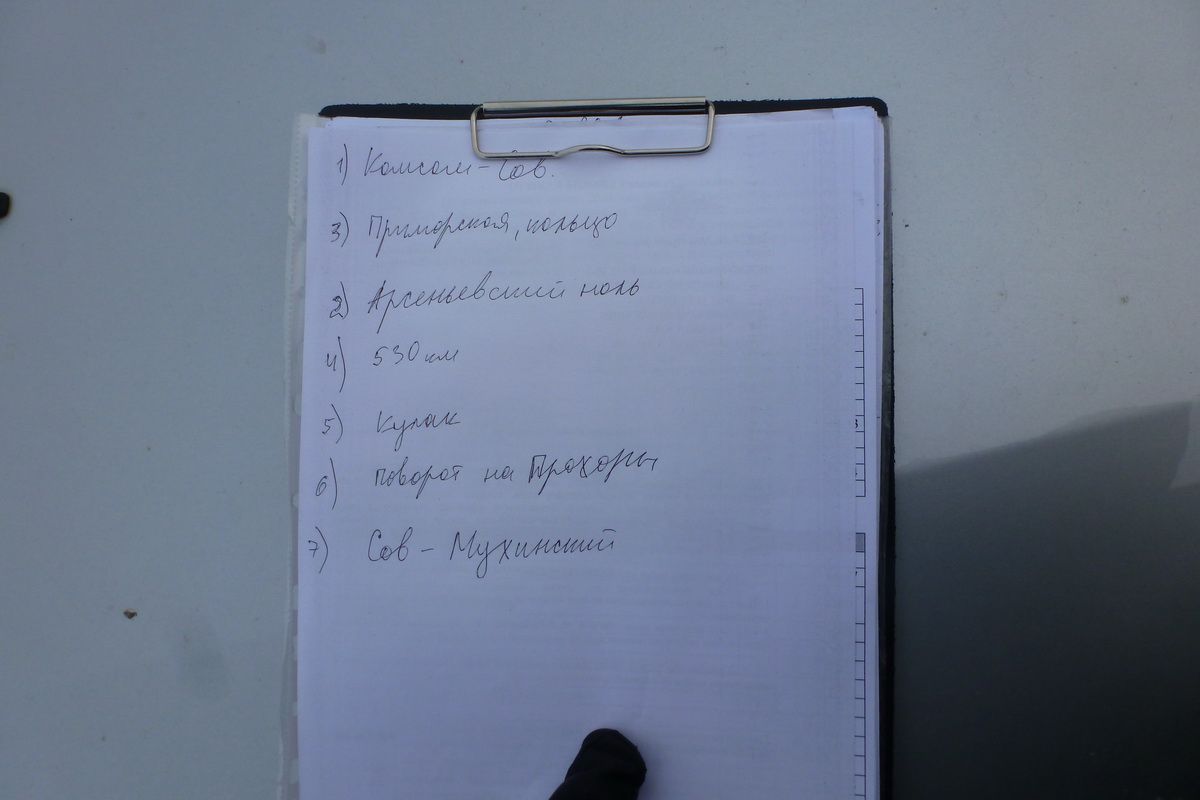 1) Комсом - Сов.
3) Приморская, кольцо
2) Арсеньевский ноль
4) 530 км
5) Кулак
6) поворот на Прохоры
7) Сов - Мухинский